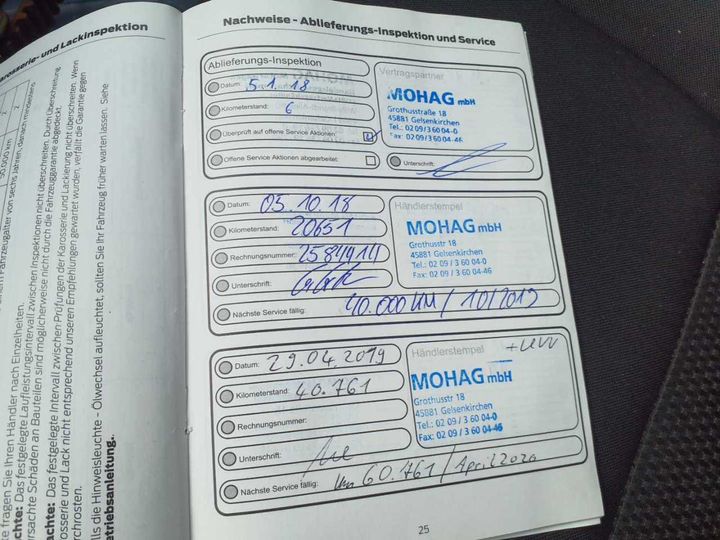 arosserie- und Lackinspektion
50.000 km
2
2
inem Fahrzeugalter von sechs Jahren, danach mindestens
te fragen Sie Ihren Händler nach Einzelheiten.
chte: Das festgelegte Laufleistungsintervall zwischen Inspektionen nicht überschreiten. Durch Überschreitung
ersachte Schäden an Bauteilen sind möglicherweise nicht durch die Fahrzeuggarantie abgedeckt.
achte: Das festgelegte Intervall zwischen Prüfungen der Karosserie und Lackierung nicht überschreiten. Wenn
rosserie und Lack nicht entsprechend unseren Empfehlungen gewartet wurden, verfällt die Garantie gegen
rchrosten.
ls die Hinweisleuchte - Ölwechsel aufleuchtet, sollten Sie Ihr Fahrzeug früher warten lassen. Siehe
etriebsanleitung.
Nachweise - Ablieferungs-Inspektion und Service
Ablieferungs-Inspektion
Datum: 5.1.18
Kilometerstand: 6
Überprüft auf offene Service Aktionen:
Offene Service Aktionen abgearbeitet:
Vertragspartner
MOHAG mbH
Grothusstraße 18
45881 Gelsenkirchen
Tel.: 02 09/3 60 04-0
Fax: 02 09/3 60 04-46
Unterschrift:
Datum: 05.10.18
Kilometerstand: 20651
Rechnungsnummer:
Unterschrift:
Nächste Service fällig: 40.000 KM / 10/2019
Händlerstempel
MOHAG mbH
Grothusstr 18
45881 Gelsenkirchen
Tel.: 02 09 / 3 60 04-0
Fax: 02 09 / 3 60 04-46
Datum: 29.04.2019
Kilometerstand: 40.761
Rechnungsnummer:
Unterschrift:
Nächste Service fällig: km 60.761 / April 2020
Händlerstempel
MOHAG mbH
Grothusstr 18
45881 Gelsenkirchen
Tel.: 02 09 / 3 60 04-0
Fax: 02 09 / 3 60 04-46
25